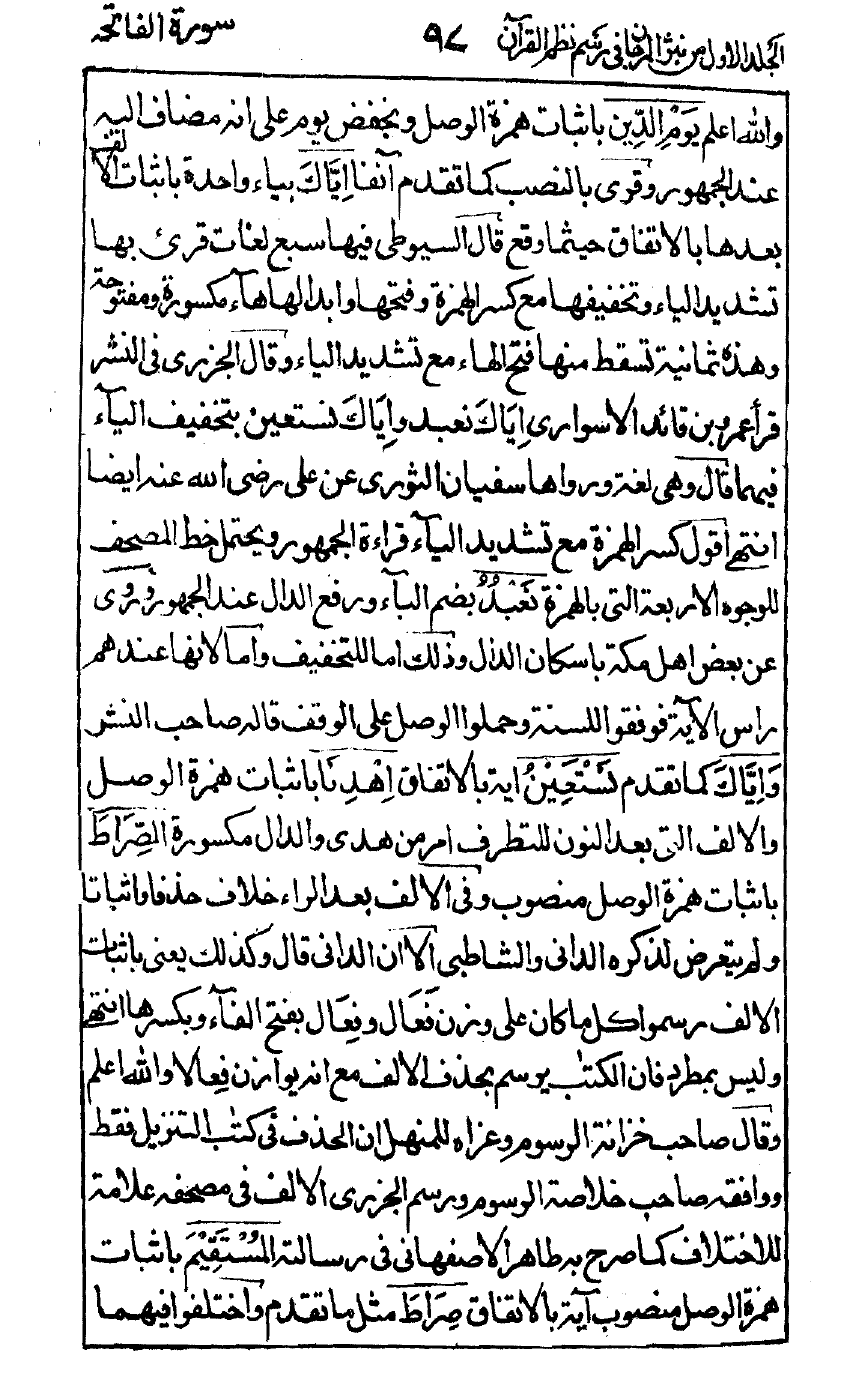 المجلد الاول من نثر المرجان في رسم نظم القرآن ٩٧ سورة الفاتحة
والله اعلم يَوْمِ الدِّينِ باثبات همزة الوصل وبخفض يوم على انه مضاف اليه
عند الجمهور وقرى بالنصب كما تقدم آنفا اِيَّاكَ بياء واحدة باثبات الالف
بعدها بالاتفاق حيثما وقع قال السيوطى فيها سبع لغات قرئ بها
تشديد الياء وتخفيفها مع كسر الهمزة وفتحها وابدالها هآء مكسورة ومفتوحة
وهذه ثمانية تسقط منها فتح الهاء مع تشديد الياء وقال الجزرى فى النشر
قرأ عمرو بن قائد الاسوارى اِيَاكَ نعبد واِيَاكَ نستعين بتخفيف اليآء
فيهما قال وهى لغة ورواها سفيان الثورى عن على رضى الله عنه ايضا
انتهى اقول كسر الهمزة مع تشديد اليآء قراءة الجمهور ويحتمل خط المصحف
للوجوه الاربعة التى بالهمزة نَعْبُدُ بضم البآء ورفع الدال عند الجمهور ورُوِى
عن بعض اهل مكة باسكان الدال وذلك اما للتخفيف واما لانها عندهم
راس الآية فوفقوا للسنة وحملوا الوصل على الوقف قاله صاحب النشر
وَاِيَّاكَ كما تقدم نَسْتَعِيْنُ اية بالاتفاق اِهْدِنَا باثبات همزة الوصل
والالف التى بعد النون للتطرف امر من هدى والدال مكسورة الصِّرَاطَ
باثبات همزة الوصل منصوب وفى الالف بعد الراء خلاف حذفا واثباتا
ولم يتعرض لذكره الدانى والشاطبى الا ان الدانى قال وكذلك يعنى باثبات
الالف رسموا كل ما كان على وزن فَعَال وفِعَال بفتح الفآء وبكسرها انتهى
وليس بمطرد فان الكتٰب يوسم بحذف الالف مع انه يوازن فِعالا والله اعلم
وقال صاحب خزانة الرسوم وعزاه للمنهل ان الحذف فى كتٰب التنزيل فقط
ووافقه صاحب خلاصة الرسوم ورسم الجزرى الالف فى مصحفه علامة
للاختلاف كما صرح به طاهر الاصفهانى فى رسالته المُسْتَقِيْمَ باثبات
همزة الوصل منصوب آية بالاتفاق صِرَاطَ مثل ما تقدم واختلفوا فيهما